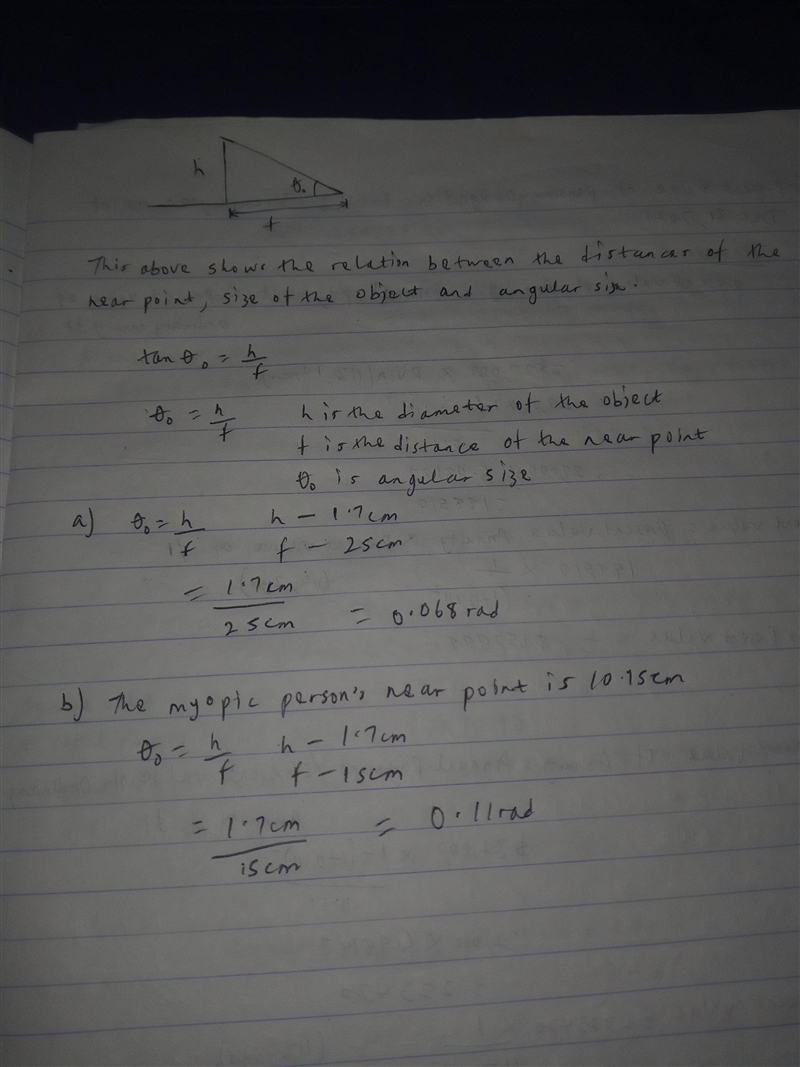 h
θ₀
f
This above shows the relation between the distances of the
near point, size of the object and angular size.
tan θ₀ = h/f
θ₀ = h/f h is the diameter of the object
f is the distance of the near point
θ₀ is angular size
a) θ₀ = h/f h - 1.7cm
f - 25cm
= 1.7cm/25cm = 0.068 rad
b) The myopic person's near point is 10.15cm
θ₀ = h/f h - 1.7cm
f - 15cm
= 1.7cm/15cm = 0.11 rad